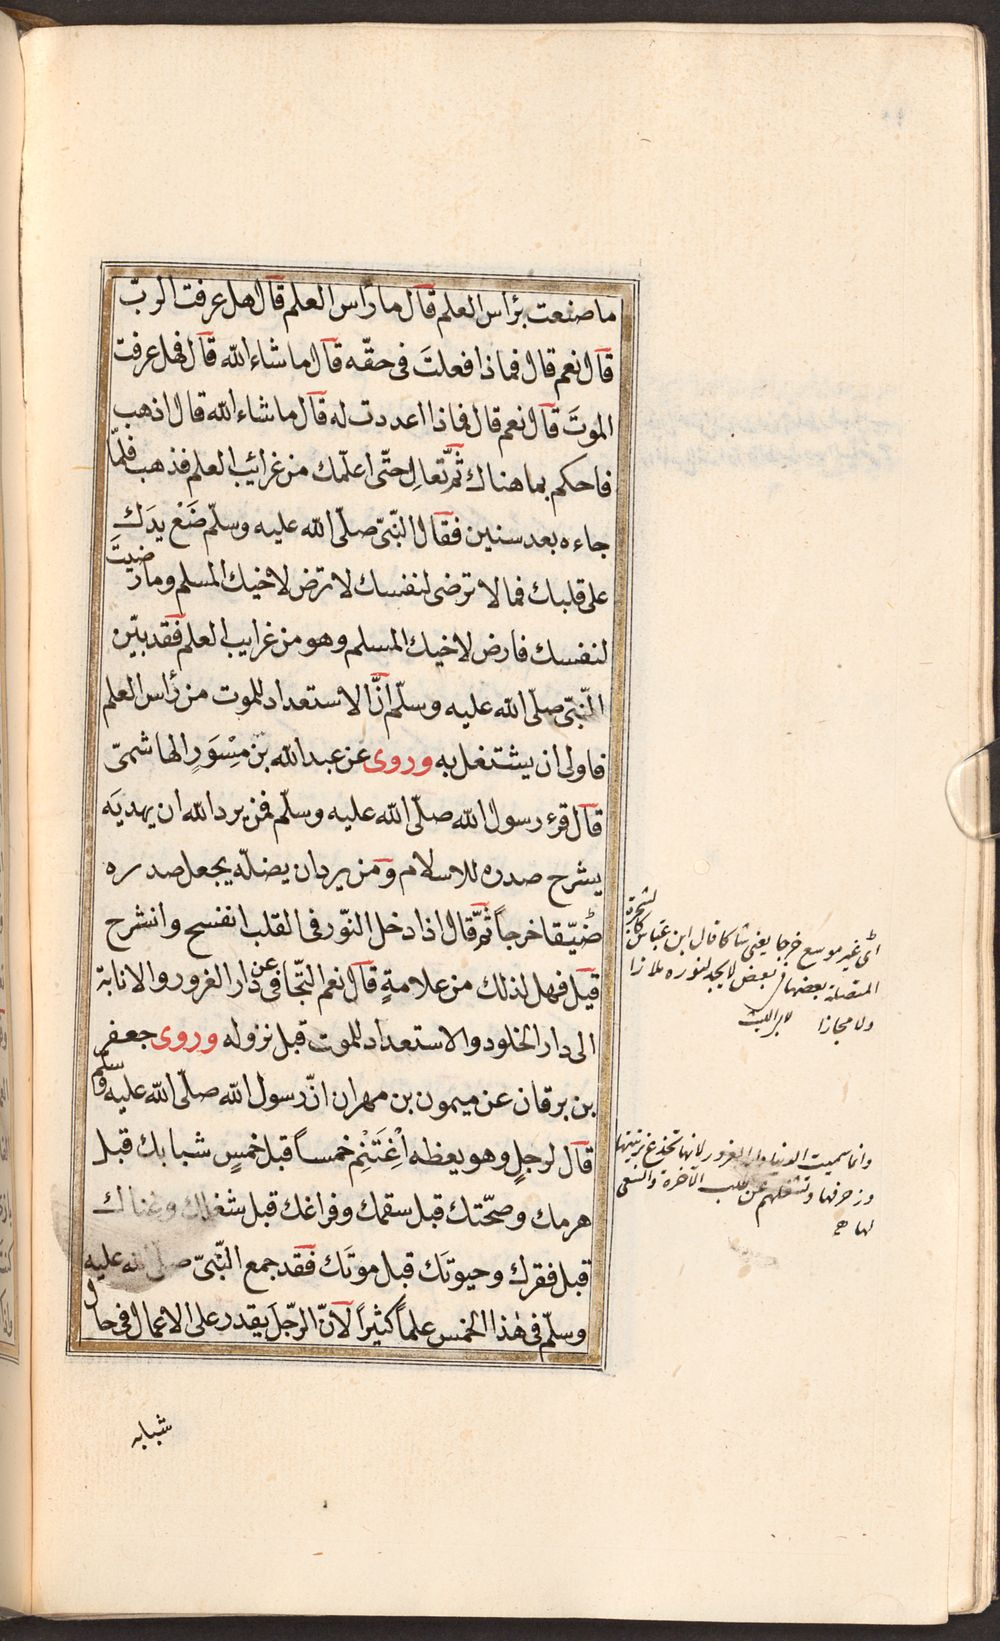 ما صنعت برأس العلم قال ما رأس العلم قال هل عرفت الربّ
قال نعم قال فماذا فعلتَ فى حقّه قال ما شاء اللّه قال فهل عرفت
الموتَ قال نعم قال فماذا اعددت له قال ما شاء اللّه قال اذهب
فاحكم بما هناك ثمّ تعال حتّى اعلّمك من غرائيب العلم فذهب فلمّا
جاءه بعد سنين فقال النّبىّ صلّى اللّه عليه وسلّم ضَعْ يدَك
على قلبك فما لا ترضى لنفسك لا ترض لاخيك المسلم وما رضيتَ
لنفسك فارض لاخيك المسلم وهو من غرايب العلم فقد بيّن
النّبىّ صلّى اللّه عليه وسلّم انّ الاستعداد للموت من رأس العلم
فاولى ان يشتغل به وروى عن عبد اللّه بن مِسْوَرٍ الهاشمىّ
قال قرء رسول اللّه صلّى اللّه عليه وسلّم فمن يرد اللّه ان يهديَه
يشرح صدره للاسلام ومن يرد ان يضلّه يجعل صدره
ضيّقا خرجاً ثمّ قال اذا دخل النّور فى القلب انفسح وانشرح
قيل فهل لذلك من علامةٍ قال نعم التّجافى عن دار الغرور والانابة
الى دار الخلود والاستعداد للموت قبل نزوله وروى جعفر
بن برقان عن ميمون بن مهران انّ رسول اللّه صلّى اللّه عليه وسلم
قال لرجلٍ وهو يعظه اِغْتَنِم خمساً قبل خمسٍ شبابك قبل
هرمك وصحّتك قبل سقمك وفراغك قبل شغلك وغناك
قبل فقرك وحيوتَك قبل موتَك فقد جمع النّبىّ صلى اللّه عليه
وسلّم فى هٰذا الخمس علماً كثيراً لانّ الرّجلَ يقدر على الاعمال فى حال
شبابه
اى غير موسع خرجا يعنى شاكا قال ابن عباس كالشجرة
المتصلة بعضها بعض لا يجد النور
ولا مجازا لابو الليث
وانما سميت الدنيا دار الغرور لانها تخدع بزينتها
وزخرفها وتشغلهم عن طلب الآخرة والسعى
لها